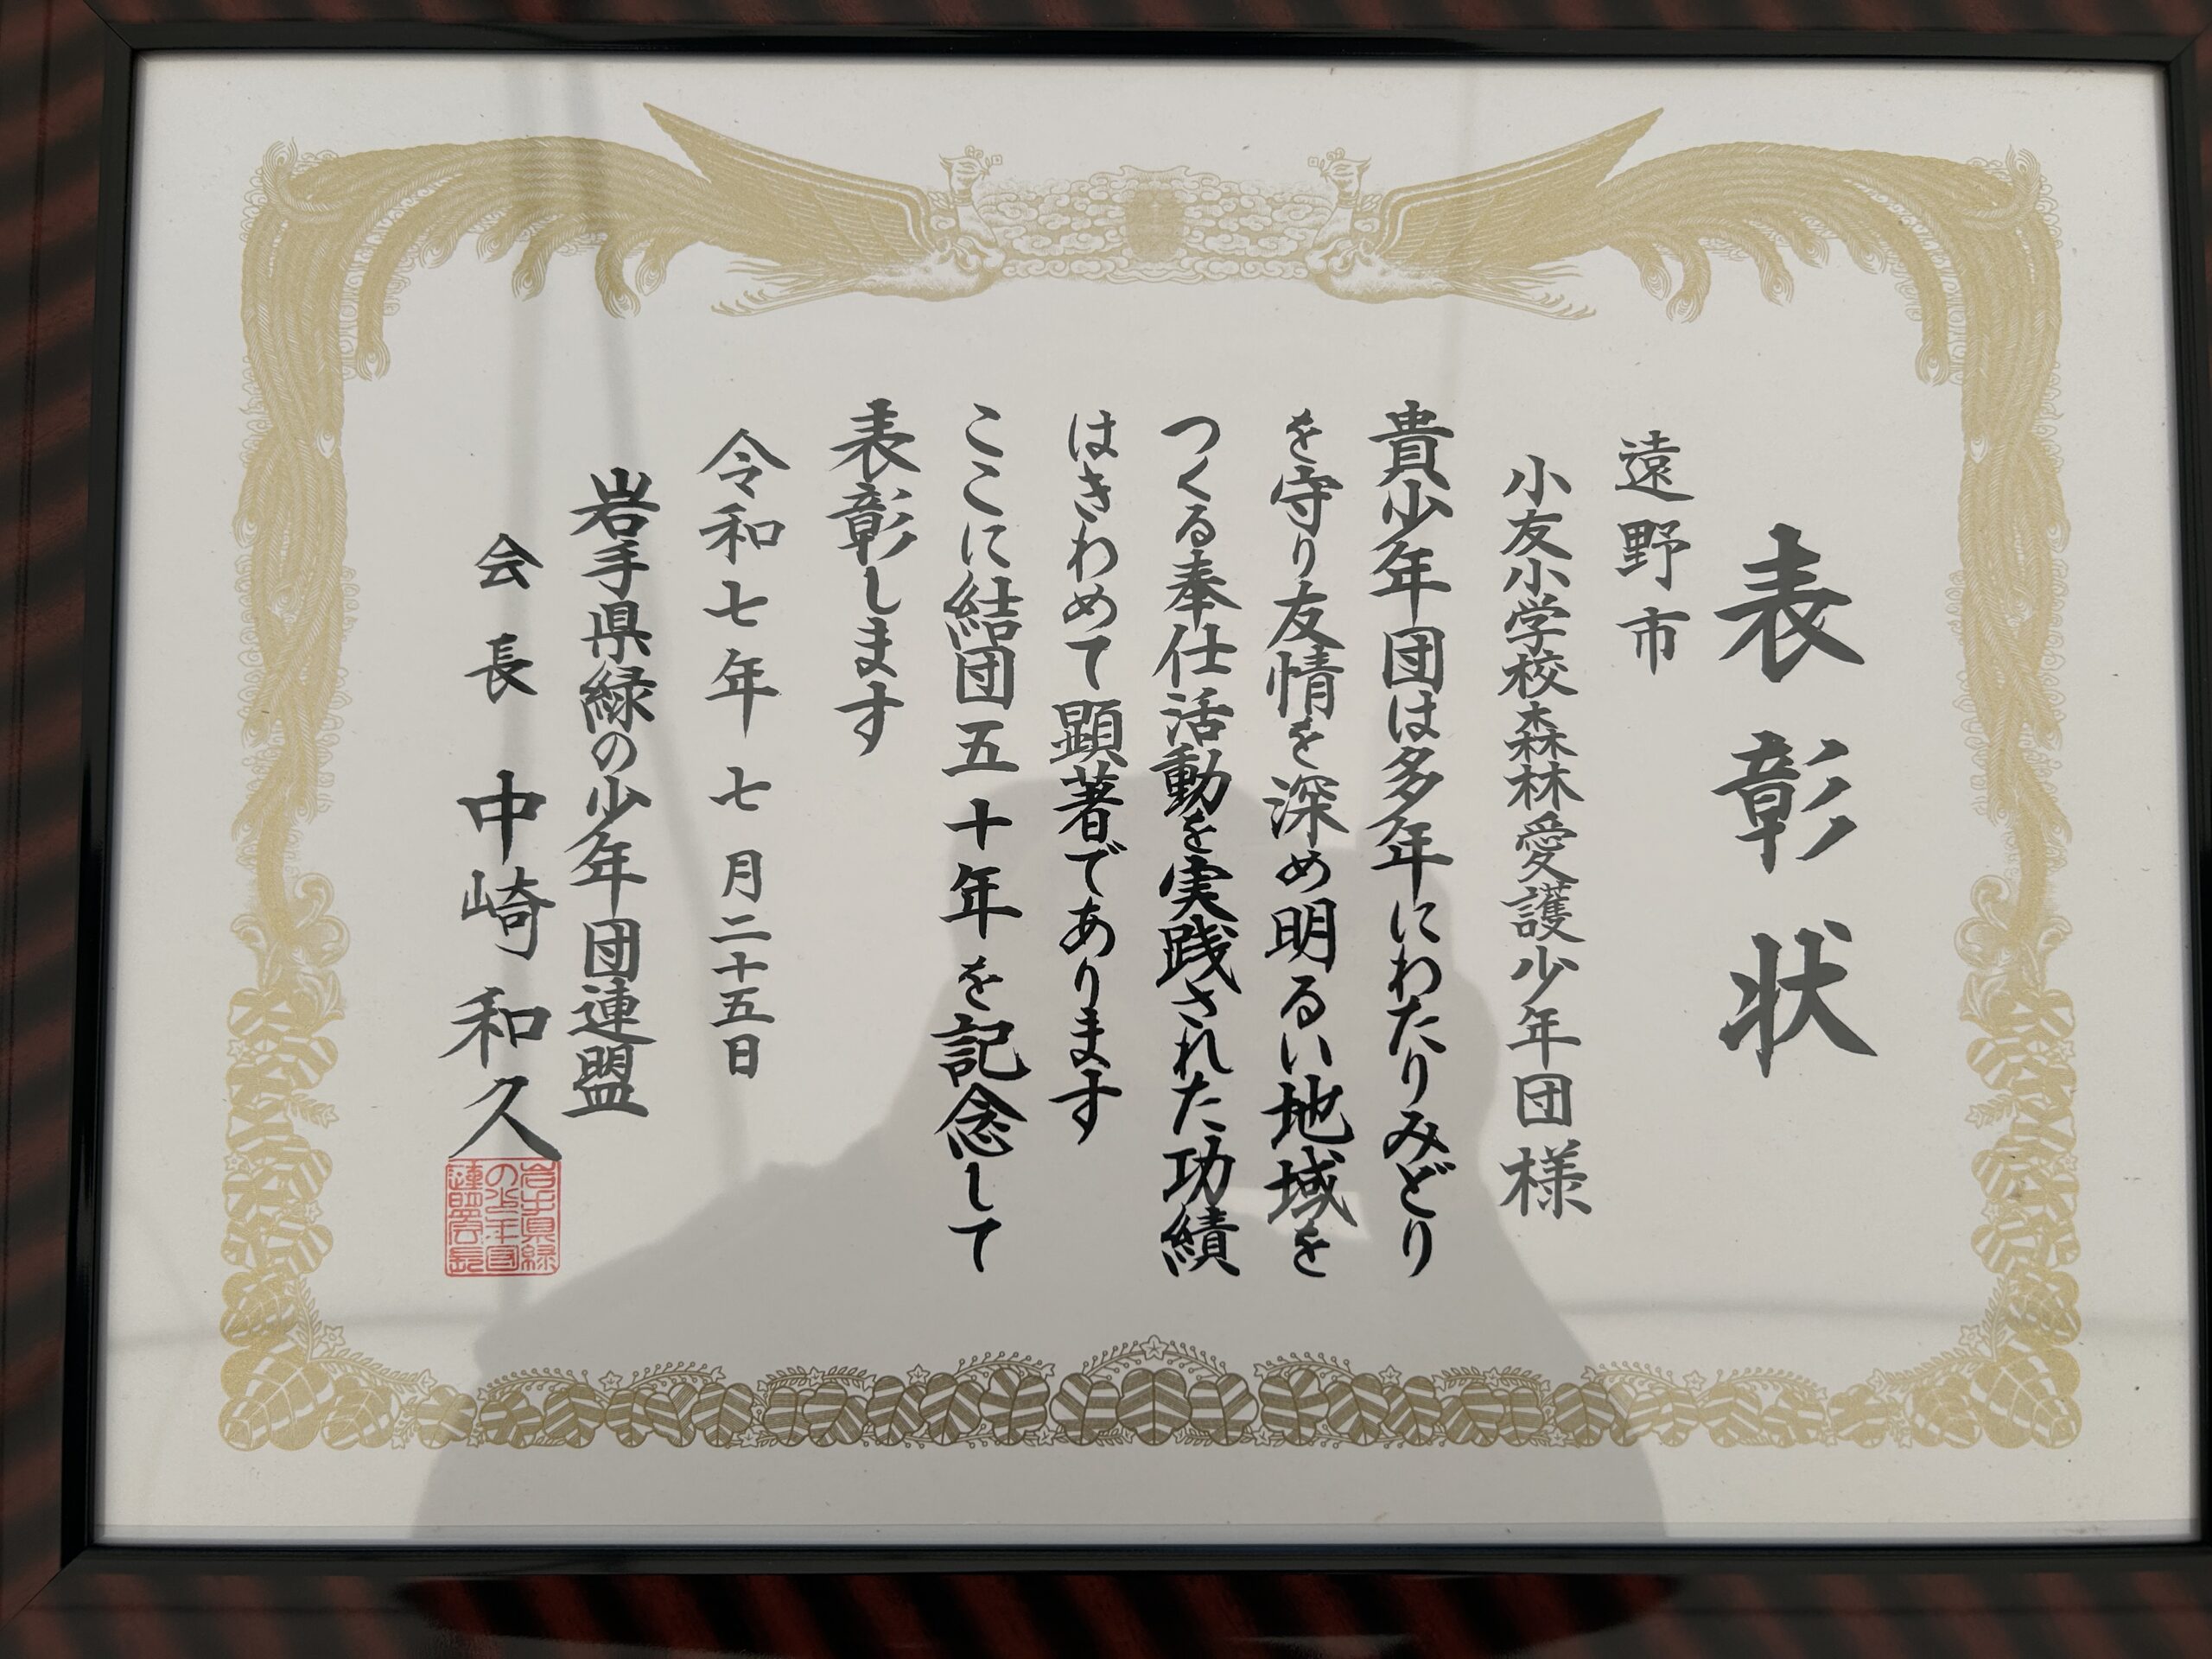 表彰状
遠野市
小友小学校森林愛護少年団様
貴少年団は多年にわたりみどり
を守り友情を深め明るい地域を
つくる奉仕活動を実践された功績
はきわめて顕著であります
ここに結団五十年を記念して
表彰します
令和七年七月二十五日
岩手県緑の少年団連盟
会長 中崎和久
岩手県緑
の少年団
連盟会長